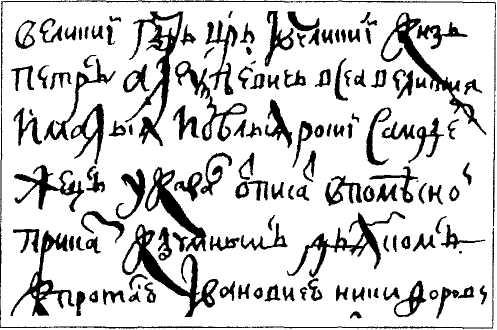 Великии Гдрь Црь и великии кнзь
Петръ Алеѯѣевичь всеа великия
и малыя и бѣлыя росии самодер
жецъ указал описа в помѣсно
прика думным дьяком
Протас Ивановичь никифоров